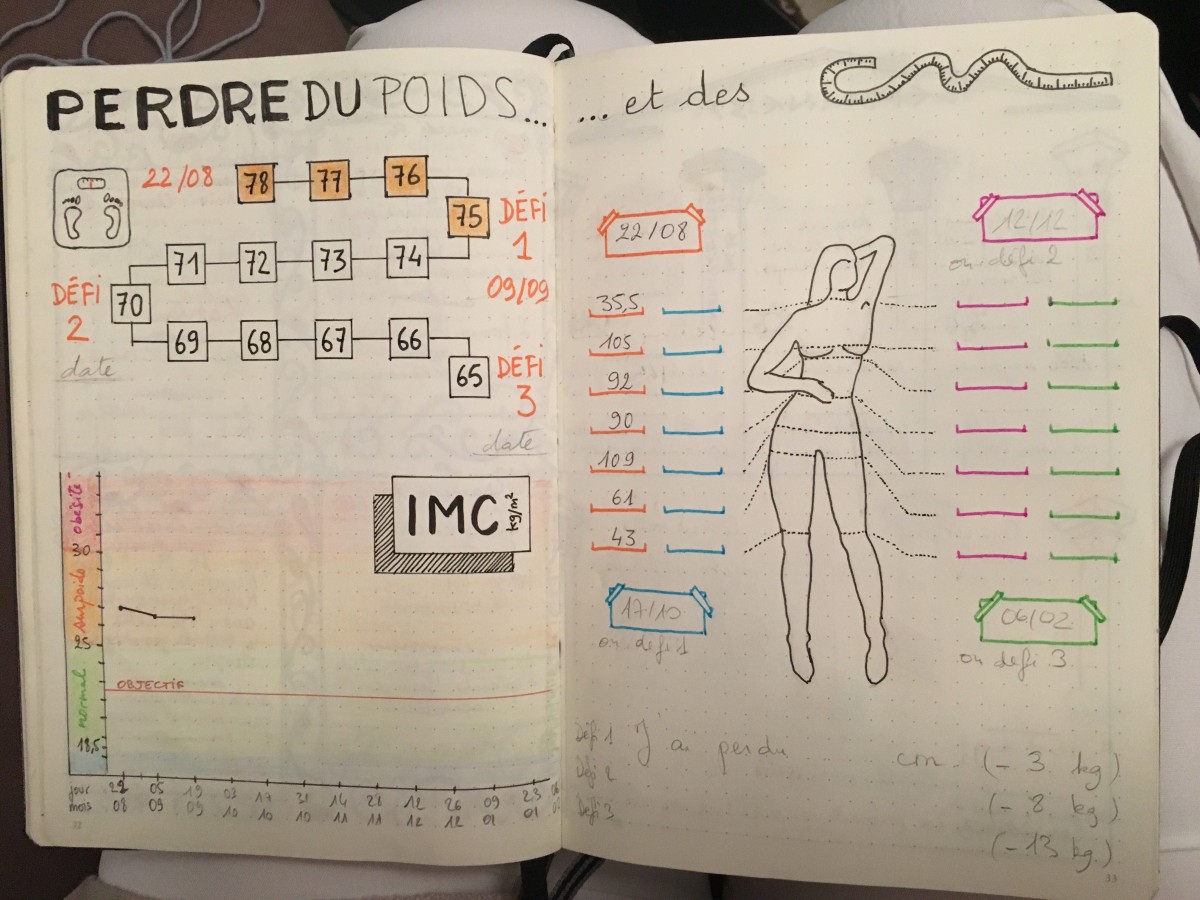 PERDRE DU POIDS...
22/08
78 77 76
75
DÉFI
1
09/09
71 72 73 74
DÉFI
2
70
date
69 68 67 66
65
DÉFI
3
date
IMC kg/m²
obésité
30
surpoids
25
normal
OBJECTIF
18,5
jour 22 05 19 03 17 31 14 28 12 26 09 23 06
mois 08 09 09 10 10 10 11 11 12 12 01 01
32
... et des
22/08
12/12
ou défi 2
35,5
105
92
90
109
61
43
17/10
ou défi 1
06/02
ou défi 3
Défi 1 J'ai perdu cm (- 3 kg)
Défi 2 (- 8 kg)
Défi 3 (- 13 kg)
33